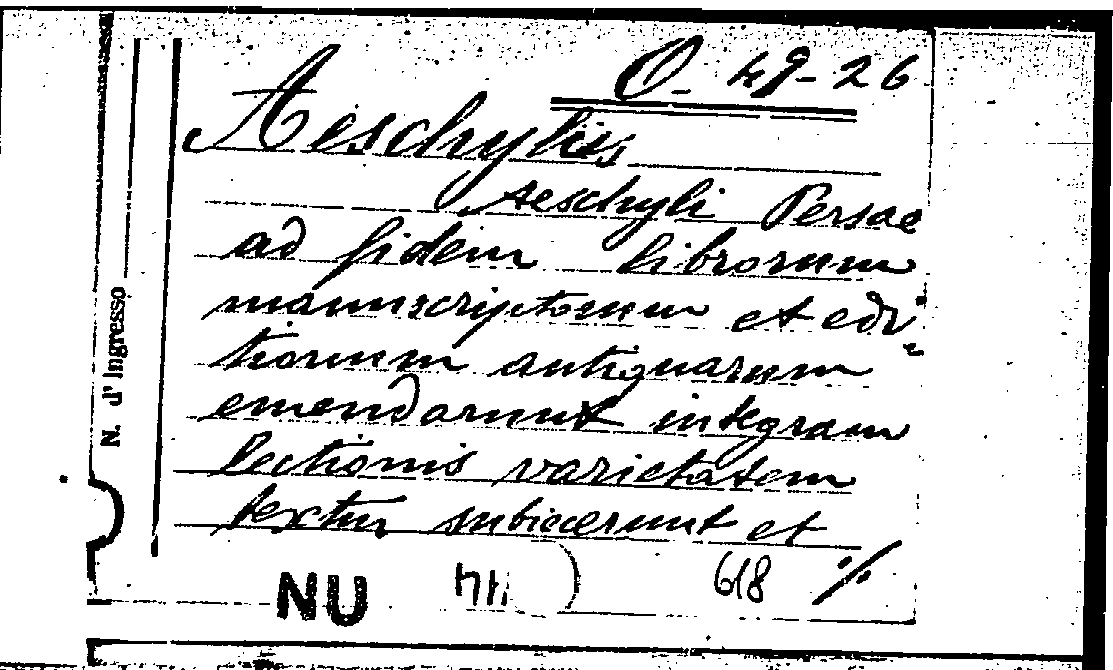 O. 49-26
Aeschylus
Aeschyli Persae
ad fidem librorum
manuscriptorum et edi-
tionum antiquarum
emendarunt integram
lectionis varietatem
textui subiecerunt et
N. d'Ingresso
NU 618 ./.